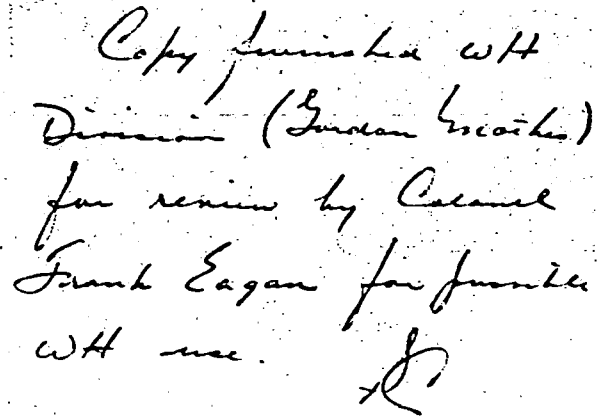 Copy furnished WH
Division (Gordon
for review by Colonel
Frank Eagan for possible
WH use.